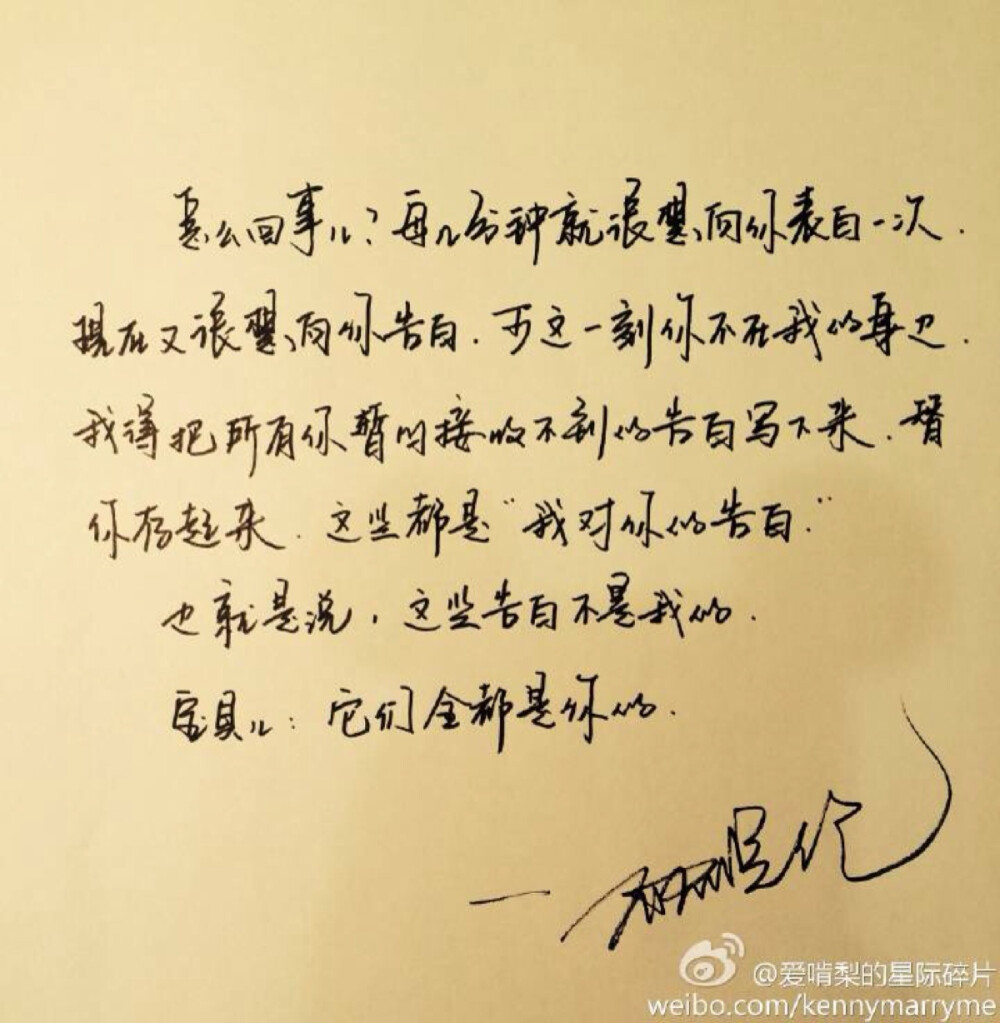 怎么回事儿？每几分钟就很想向你表白一次.
现在又很想向你告白.可这一刻你不在我的身边.
我得把所有你暂时接收不到的告白写下来.替
你存起来.这些都是“我对你的告白.”
也就是说，这些告白不是我的.
宝贝儿：它们全都是你的.
@爱啃梨的星际碎片
weibo.com/kennymarryme